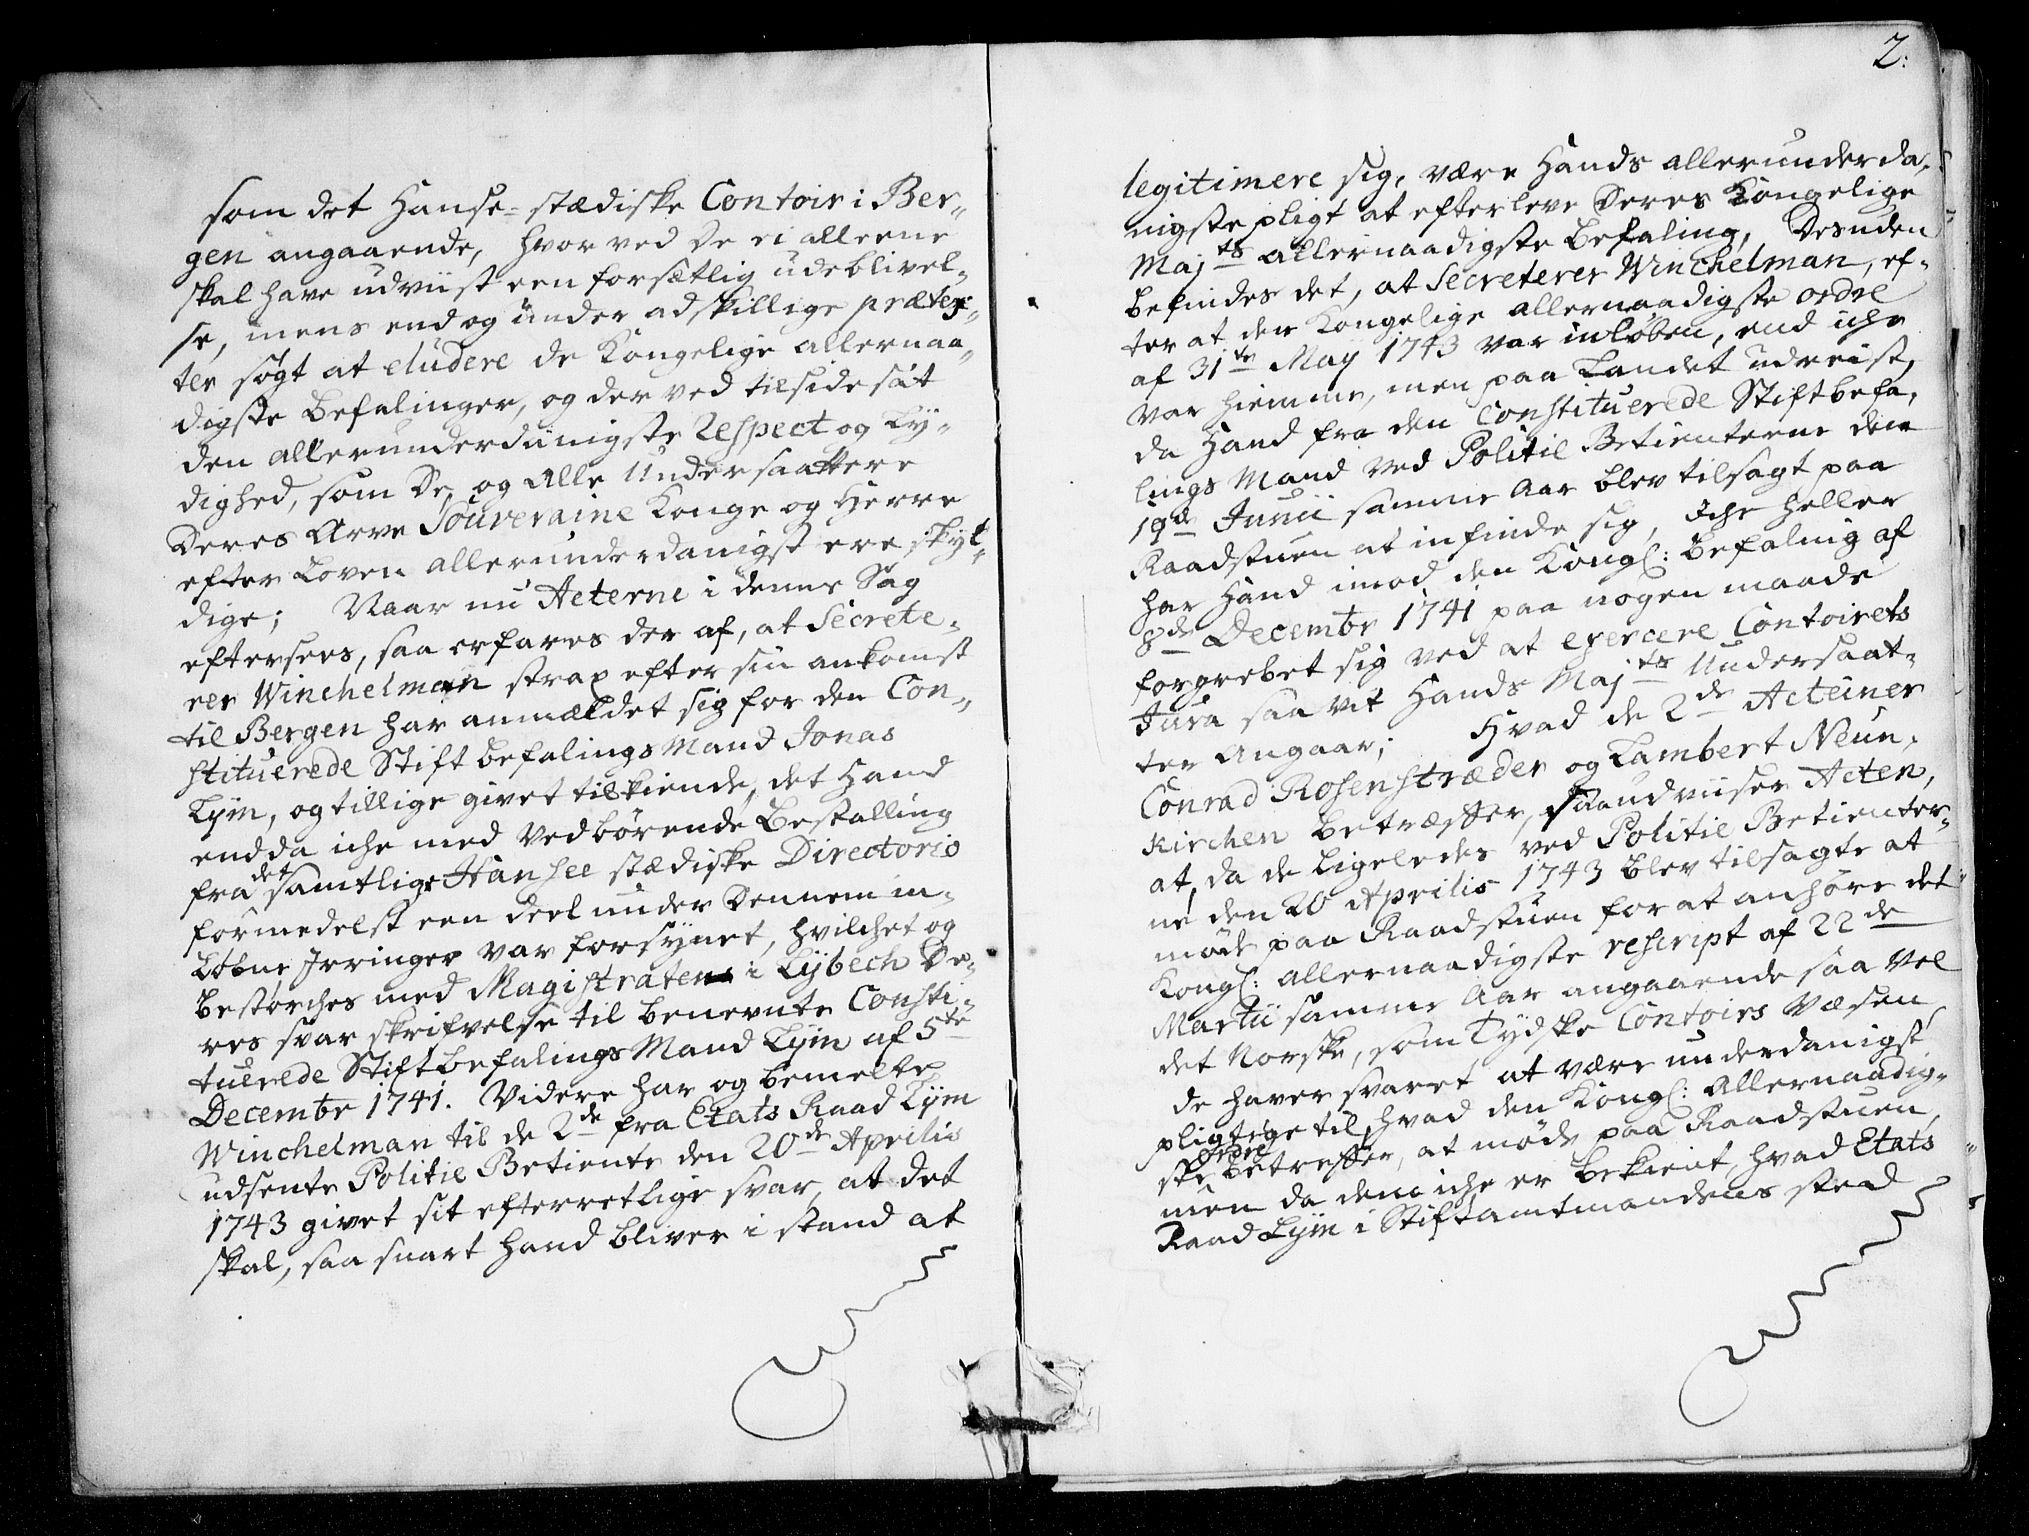 som det Hanse-stædiske Contoir i Ber-
gen angaaende, hvorved De ei alleene
skal have udviist een forsætlig udeblivel-
se, mens end og under adskillige præter-
ter søgt at eludere de Kongelige allernaa-
digste befalinger, og derved tilsidesat
den allerunderdanigste Respect og Ly-
dighed, som De og alle Undersaattere
Deres Arve Souveraine Konge og Herre
efter Loven allerunderdanigst ere skyl-
dige; Naar nu Acterne i denne Sag
eftersees, saa erfares der af, at Secrete-
rer Winchelman strax efter sin ankomst
til Bergen har anmældet sig for den Con-
stituerede Stiftbefalings Mand Jonas
Lÿm, og tillige givet tilkiende, det Hand
endda iche med vedbørende Bestalling
fra det samtlige Hansee stædiske Directorio
formedelst een deel under Dennem in-
løbne Irringer var forsÿnet, hvilchet og
bestørches med Magistraten i Lÿbech De-
res svar skrifvelse til benevnte Consti-
tuerede Stiftbefalings Mand Lÿm af 5te
Decembr 1741. Videre har og bemelte
Winchelman til de 2de fra Etats Raad Lÿm
udsente Politie Betiente den 20de Aprilis
1743 givet sit efterretlige svar, at det
skal, saa snart Hand bliver i stand at
2:
legitimere sig, være Hands allerunderda-
nigste pligt at efterleve Deres Kongelige
Majts allernaadigste befaling, Desuden
befindes det, at Secreterer Winchelman, ef-
ter at den Kongelige allernaadigste ordre
af 31te Maÿ 1743 var inløben, end iche
var hiemme, men paa Landet udreist,
da Hand fra den Constituerede Stiftbefa-
lings Mand ved Politie Betienterne den
19de Junii samme Aar blev tilsagt paa
Raadstuen at infinde sig, Iche heller
har Hand imod den Kongl: befaling af
8de Decembr 1741 paa nogen maade
forgrebet sig ved at exercere Contoirets
Jura saa vit Hands Majts Undersaat-
ter angaar; Hvad de 2de Acteiner
Conrad Rosenstræder og Lambert Neun-
kirchen betræffer, saa udviiser Acten,
at, da de ligeledes ved Politie Betienter-
ne den 20 Aprilis 1743 blev tilsagte at
møde paa Raadstuen for at anhøre det
Kongl: allernaadigste rescript af 22de
Martii samme Aar angaaende saa vel
det Norske, som Tydske Contoirs Væsen
de haver svaret at være underdanigst
pligtige til hvad den Kongl: Allernaadig-
ske ordre betreffer, at møde paa Raadstuen,
men da dem iche er bekient, hvad Etats
Raad Lÿm i Stiftamtmandens sted